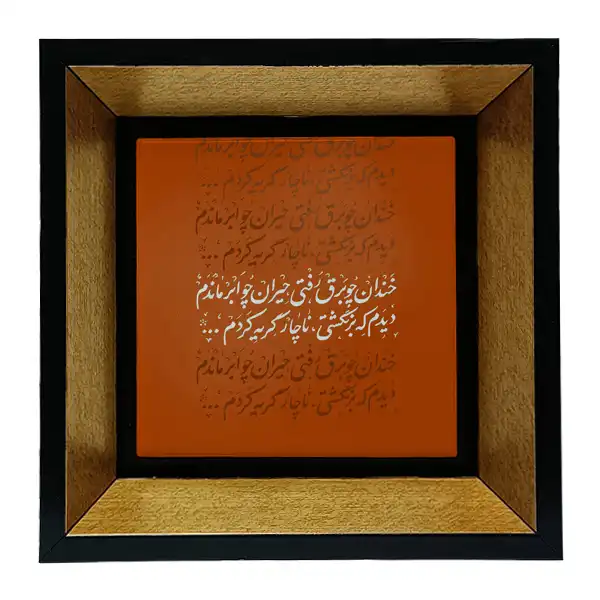 خندان چو برق رفتی حیران چو ابر ماندم
دیدم که برنگشتی، ناچار گریه کردم ...
خندان چو برق رفتی حیران چو ابر ماندم
دیدم که برنگشتی، ناچار گریه کردم ...
خندان چو برق رفتی حیران چو ابر ماندم
دیدم که برنگشتی، ناچار گریه کردم ...
خندان چو برق رفتی حیران چو ابر ماندم
دیدم که برنگشتی، ناچار گریه کردم ...